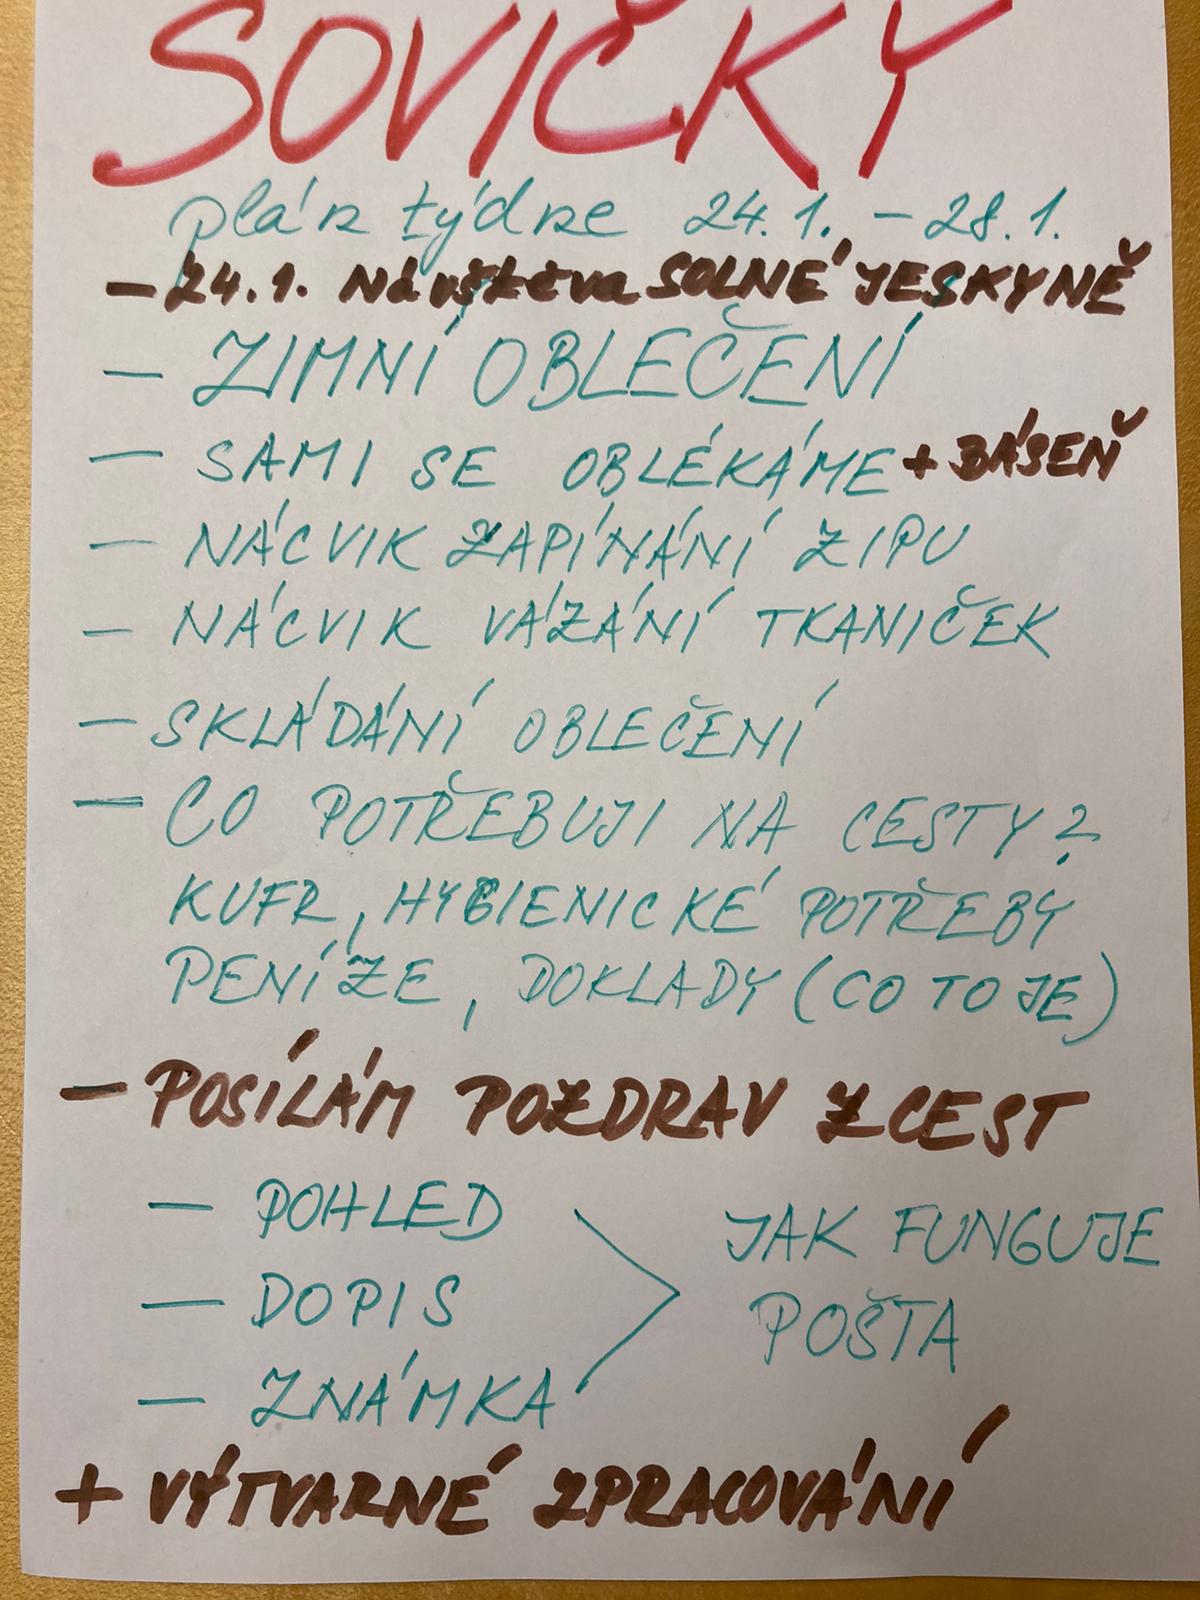 SOVIČKY
plán týdne 24.1. – 28.1.
– 24.1. Návštěva SOLNÉ JESKYNĚ
– ZIMNÍ OBLEČENÍ
– SAMI SE OBLÉKÁME + BÁSEŇ
– NÁCVIK ZAPÍNÁNÍ ZIPU
– NÁCVIK VÁZÁNÍ TKANIČEK
– SKLÁDÁNÍ OBLEČENÍ
– CO POTŘEBUJI NA CESTY?
KUFR, HYGIENICKÉ POTŘEBY
PENÍZE, DOKLADY (CO TO JE)
– POSÍLÁM POZDRAV Z CEST
– POHLED
– DOPIS
– ZNÁMKA
JAK FUNGUJE
POŠTA
+ VÝTVARNÉ ZPRACOVÁNÍ